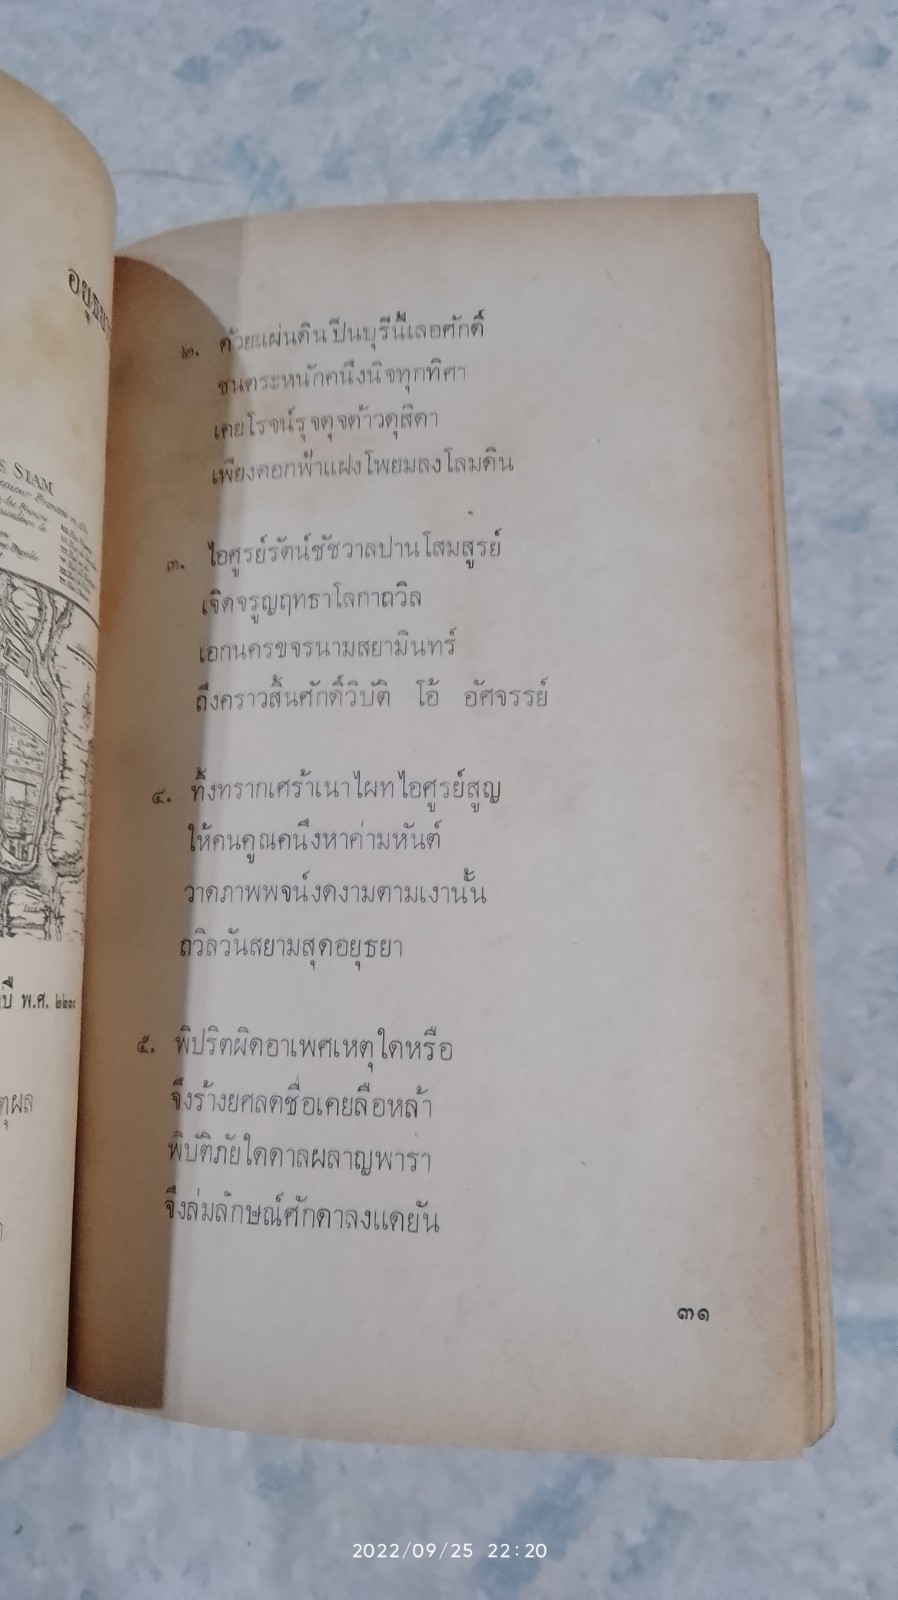 อยุธยา
E SIAM
บี พ.ศ. ๒๒๓๐
ตุผล
๒. ด้วยแผ่นดินปิ่นบุรีนี้เลอศักดิ์
ชนตระหนักคนึงนิจทุกทิศา
เคยโรจน์รุจดุจด้าวดุสิดา
เพียงดอกฟ้าแฝงโพยมลงโลมดิน
๓. ไอศูรย์รัตน์ชัชวาลปานโสมสูรย์
เจิดจรูญฤทธาโลกาถวิล
เอกนครขจรนามสยามินทร์
ถึงคราวสิ้นศักดิ์วิบัติ โอ้ อัศจรรย์
๔. ทิ้งทรากเศร้าเนาไผทไอศูรย์สูญ
ให้คนคูณคนึงหาค่ามหันต์
วาดภาพพจน์งดงามตามเงานั้น
ถวิลวันสยามสุดอยุธยา
๕. พิปริตผิดอาเพศเหตุใดหรือ
จึงร้างยศลดชื่อเคยลือหล้า
พิบัติภัยใดดาลผลาญพารา
จึงล่มลักษณ์ศักดาลงแดยัน
๓๑
2022/09/25 22:20